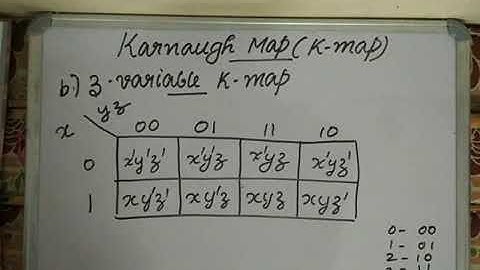 Karnaugh Map (K-map)
b.) 3-variable K-map
yz
x 00 01 11 10
0 x'y'z' x'y'z x'yz x'yz'
1 xy'z' xy'z xyz xyz'
0- 00
1- 01
2- 10
3- 11